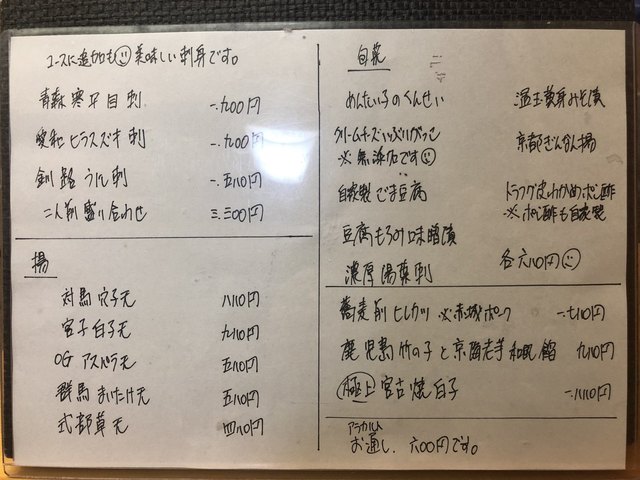 コースに追加も☺美味しい刺身です。
青森寒平目刺 一.九00円
愛知ヒラスズキ刺 一.九00円
釧路うに刺 一.五八0円
二人前盛り合わせ 三.三00円
揚
対馬穴子天 八八0円
宮子白子天 九八0円
OGアスパラ天 五八0円
群馬まいたけ天 五八0円
式部草天 四八0円
旬菜
めんたい子のくんせい
クリームチーズいぶりがっこ
※無添加です☺
自家製ごま豆腐
豆腐もろみ味噌漬
濃厚湯葉刺
温玉黄身みそ漬
京都ぎんなん揚
トラフグ皮わかめポン酢
※ポン酢も自家製
各六八0円☺
蕎麦前ヒレカツ ※赤城ポーク 一.七八0円
鹿児島竹の子と京海老芋和風餡 九八0円
極上 宮古焼白子 一.八八0円
アラカルト
お通し、六00円です。